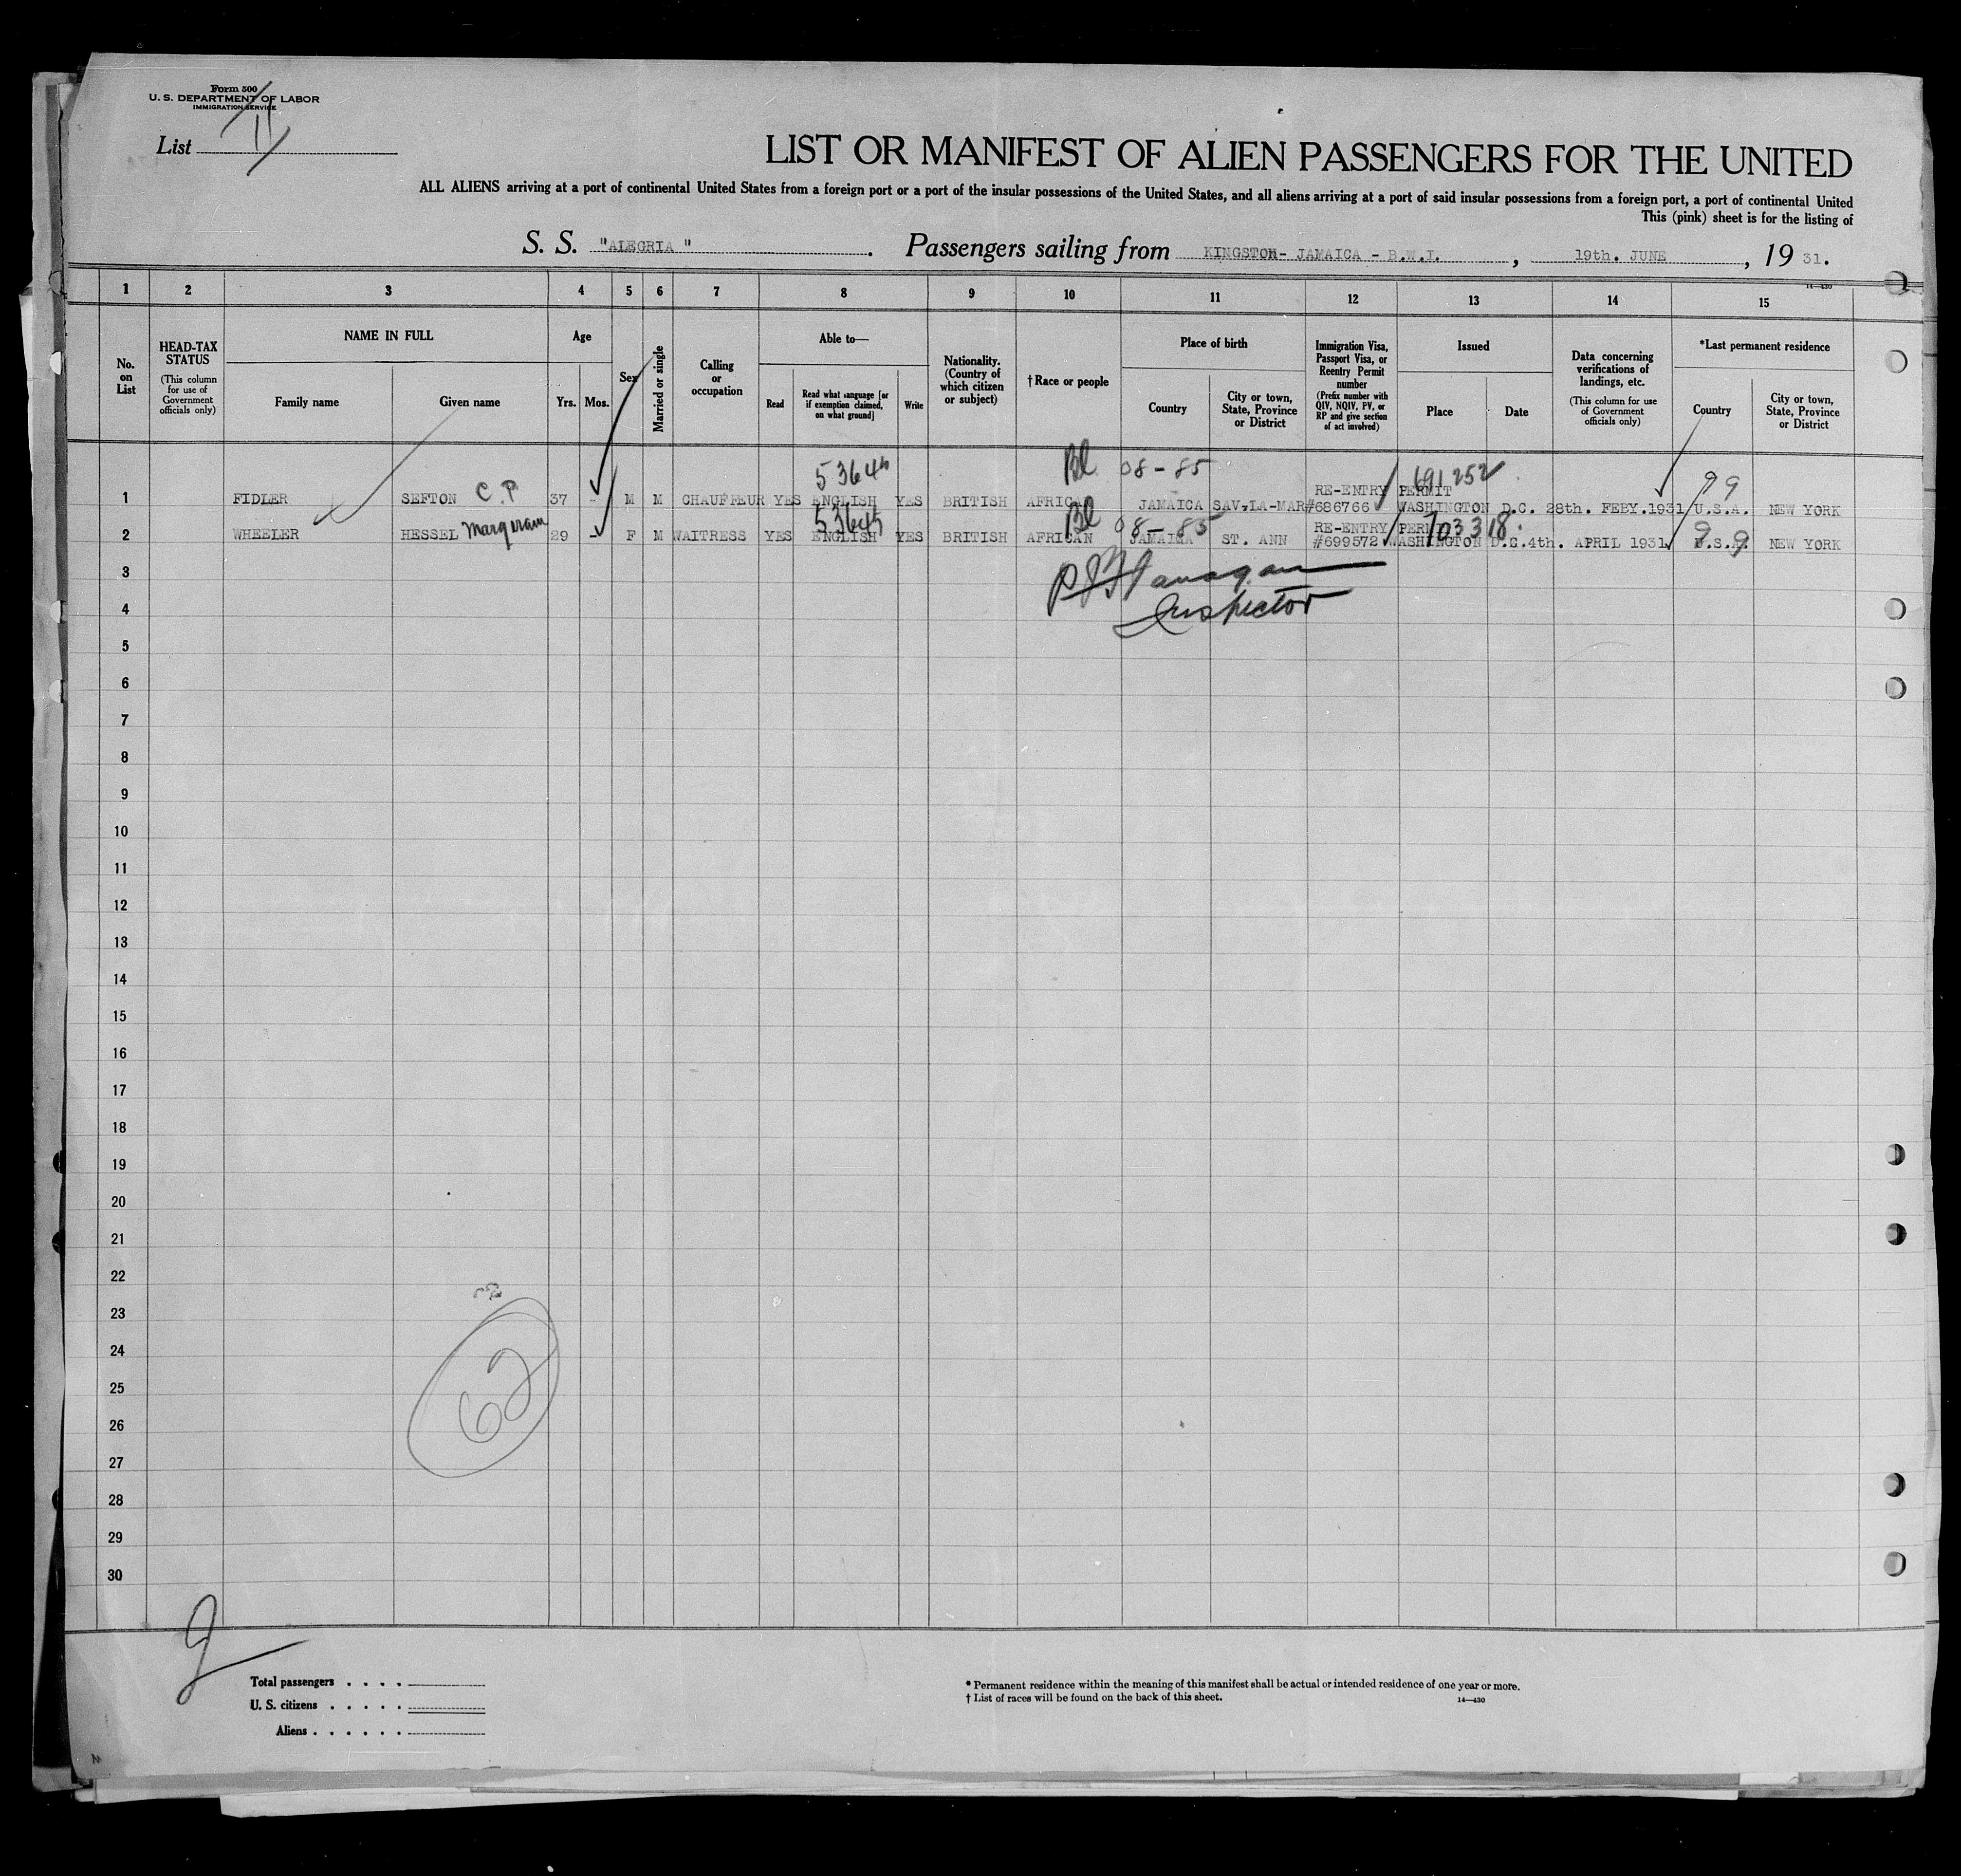 Form 500
U. S. DEPARTMENT OF LABOR
IMMIGRATION SERVICE
List 11
LIST OR MANIFEST OF ALIEN PASSENGERS FOR THE UNITED
ALL ALIENS arriving at a port of continental United States from a foreign port or a port of the insular possessions of the United States, and all aliens arriving at a port of said insular possessions from a foreign port, a port of continental United
This (pink) sheet is for the listing of
S. S. "ALEGRIA". Passengers sailing from KINGSTON- JAMAICA - B.W.I., 19th. JUNE, 19 31.
14—430
1 2 3 4 5 6 7 8 9 10 11 12 13 14 15
No. on List
HEAD-TAX STATUS (This column for use of Government officials only)
NAME IN FULL
Family name
Given name
Age
Yrs. Mos.
Sex
Married or single
Calling or occupation
Able to—
Read
Read what language [or if exemption claimed, on what ground]
Write
Nationality. (Country of which citizen or subject)
†Race or people
Place of birth
Country
City or town, State, Province or District
Immigration Visa, Passport Visa, or Reentry Permit number (Prefix number with QIV, NQIV, PV, or RP and give section of act involved)
Issued
Place
Date
Data concerning verifications of landings, etc. (This column for use of Government officials only)
*Last permanent residence
Country
City or town, State, Province or District
Bl 08-85 691252 99
RE-ENTRY PERMIT
1 FIDLER SEFTON C.P 37 - M M CHAUFFEUR YES ENGLISH YES BRITISH JAMAICA SAV-LA-MAR #686766 WASHINGTON D.C. 28th. FEBY.1931 U.S.A. NEW YORK
53645 Bl 08-85 703318 99
RE-ENTRY PERMIT
2 WHEELER HESSEL 29 - F M WAITRESS YES ENGLISH YES BRITISH AFRICAN JAMAICA ST. ANN #699572 WASHINGTON D.C. 4th. APRIL 1931 U.S.A. NEW YORK
3
Inspector
4
5
6
7
8
9
10
11
12
13
14
15
16
17
18
19
20
21
22
23
24
25
26
27
28
29
30
62
2
Total passengers . . . .
U. S. citizens . . . . .
Aliens . . . . . .
* Permanent residence within the meaning of this manifest shall be actual or intended residence of one year or more.
† List of races will be found on the back of this sheet.
14—430